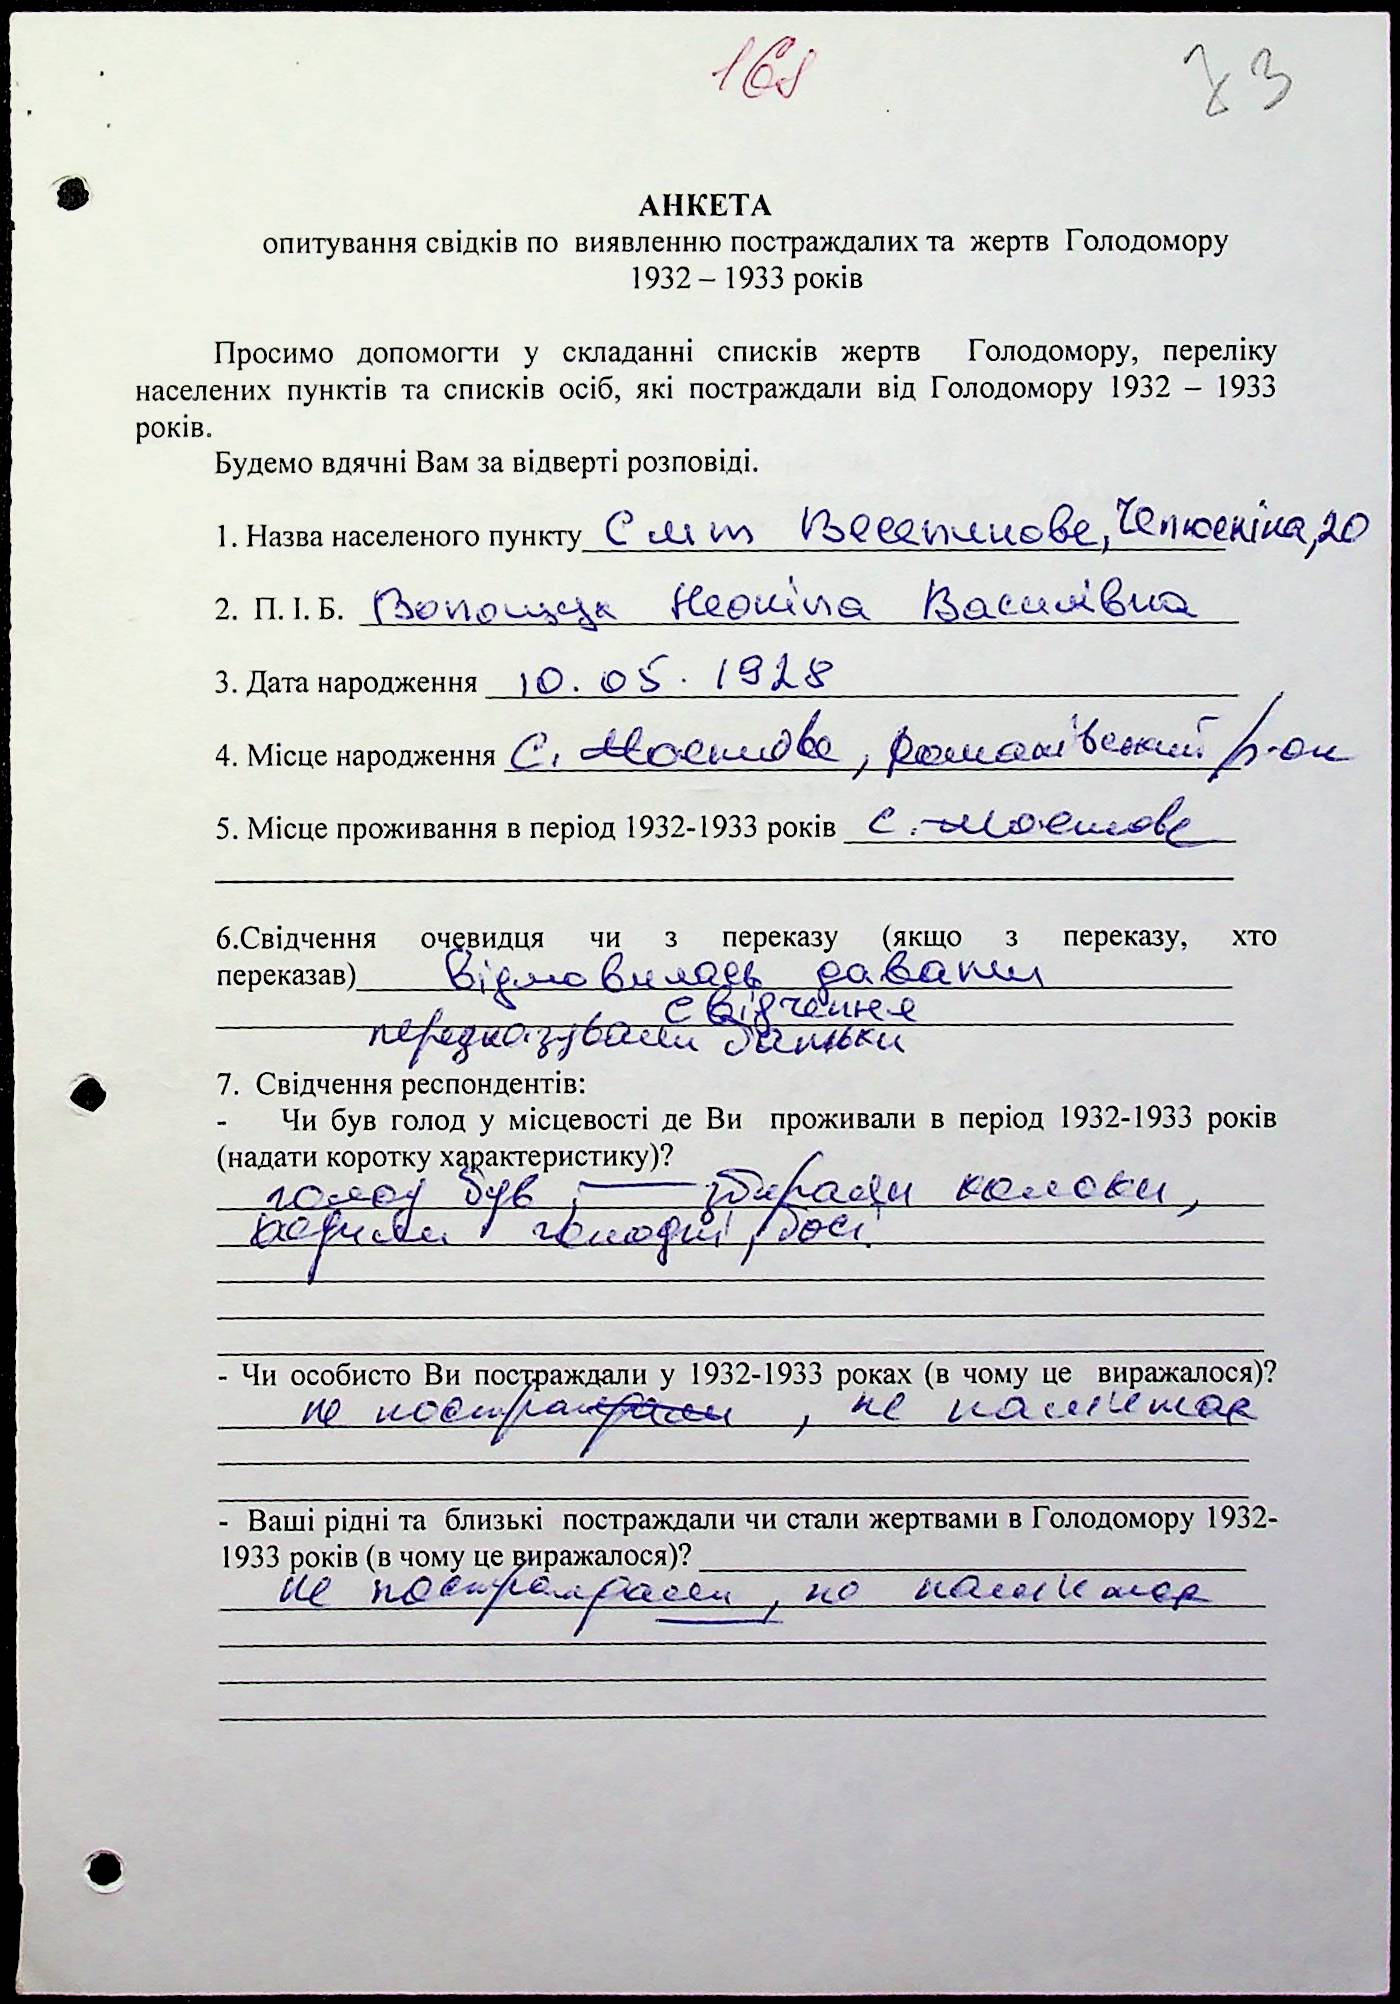 168 73
АНКЕТА
опитування свідків по виявленню постраждалих та жертв Голодомору
1932 – 1933 років
Просимо допомогти у складанні списків жертв Голодомору, переліку
населених пунктів та списків осіб, які постраждали від Голодомору 1932 – 1933
років.
Будемо вдячні Вам за відверті розповіді.
1. Назва населеного пункту смт Веселинове, Челюскіна, 20
2. П. І. Б. Волощук Неоніла Василівна
3. Дата народження 10.05.1928
4. Місце народження с. Мостове, р-он
5. Місце проживання в період 1932-1933 років с. Мостове
6.Свідчення очевидця чи з переказу (якщо з переказу, хто
переказав) Відмовилась давати
свідчення
передказували батьки
7. Свідчення респондентів:
- Чи був голод у місцевості де Ви проживали в період 1932-1933 років
(надати коротку характеристику)?
голод був, збирали колоски,
ходили голодні, босі.
- Чи особисто Ви постраждали у 1932-1933 роках (в чому це виражалося)?
не постраждали, не пам'ятає
- Ваші рідні та близькі постраждали чи стали жертвами в Голодомору 1932-
1933 років (в чому це виражалося)?
не постраждали, не пам'ятає